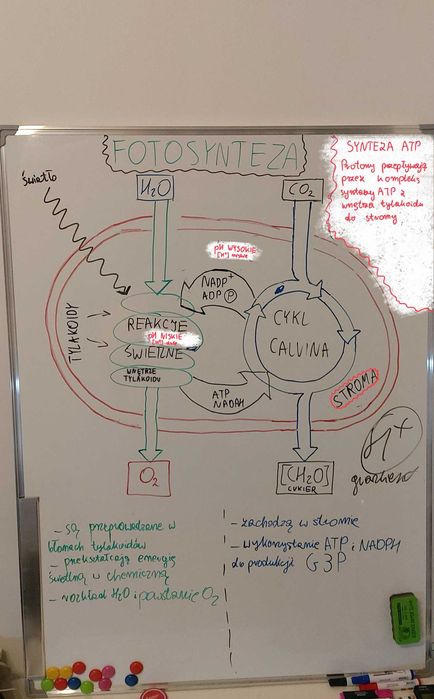 FOTOSYNTEZA
SYNTEZA ATP
Protony przepływają
przez kompleks
syntazy ATP z
wnętrza tylakoidu
do stromy
światło
H₂O
CO₂
pH WYSOKIE
[H⁺] niskie
NADP⁺
ADP P
TYLAKOIDY
REAKCJE
pH NISKIE
ŚWIETLNE
WNĘTRZE
TYLAKOIDU
CYKL
CALVINA
ATP
NADPH
STROMA
O₂
[CH₂O]
CUKIER
– są przeprowadzane w
błonach tylakoidów
– przekształcają energię
świetlną w chemiczną
– rozkład H₂O i powstanie O₂
– zachodzą w stromie
– wykorzystanie ATP i NADPH
do produkcji G3P